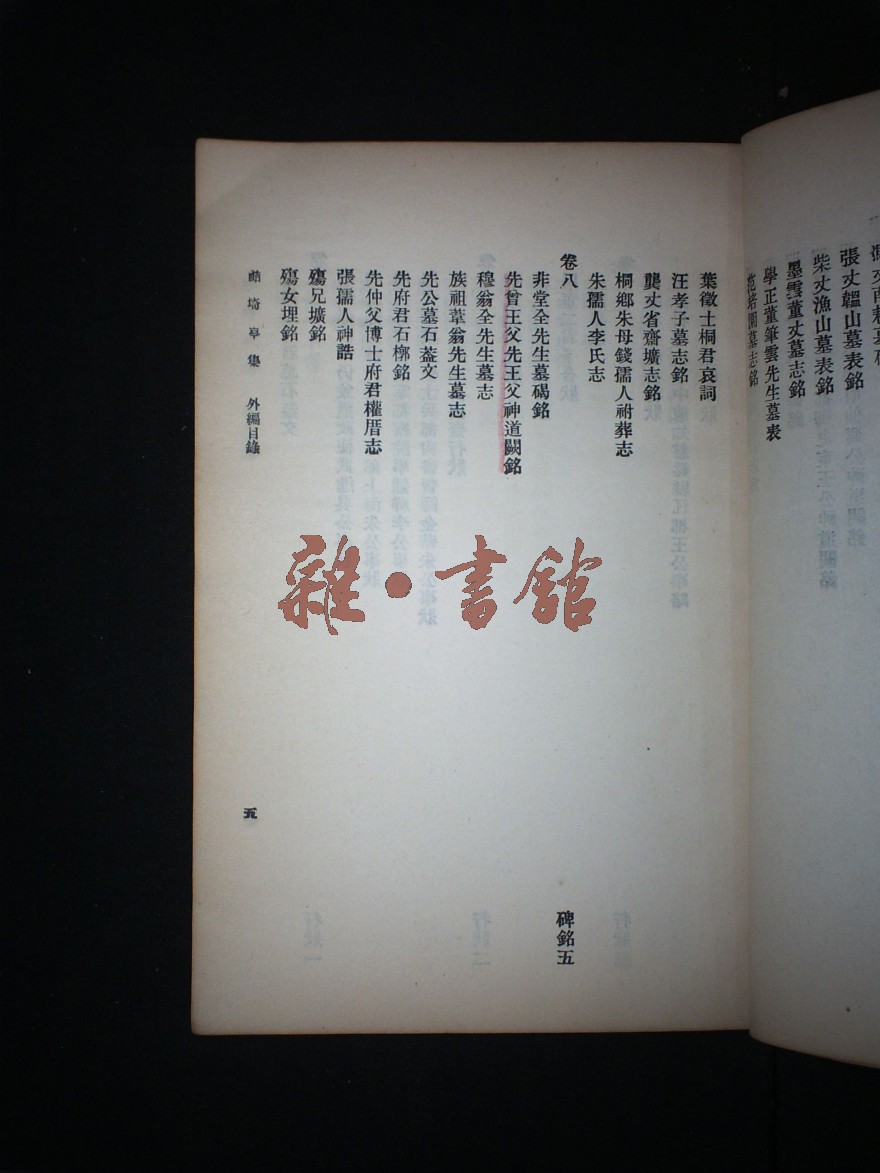 張丈韞山墓表銘
柴丈漁山墓表銘
墨雲董丈墓志銘
學正董筆雲先生墓表
墓志銘
葉徵士桐君哀詞
汪孝子墓志銘
龔丈省齋壙志銘
桐鄉朱母錢孺人祔葬志
朱孺人李氏志
卷八 碑銘五
非堂全先生墓碣銘
先曾王父先王父神道闕銘
穆翁全先生墓志
族祖葦翁先生墓志
先公墓石蓋文
先府君石槨銘
先仲父博士府君權厝志
張孺人神誥
殤兄壙銘
殤女埋銘
鮚埼亭集 外編目錄 五
雜·書館